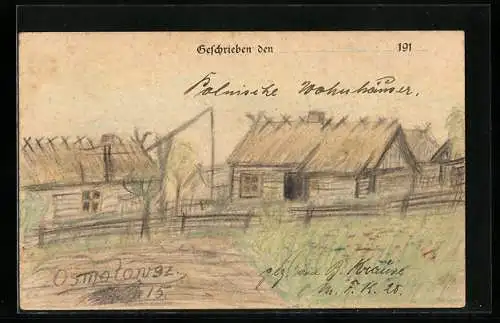 Geschrieben den 191
Polnische Wohnhäuser.
Osmolovsz.
15.
gez. von B. Krause
M. F. K. 28.